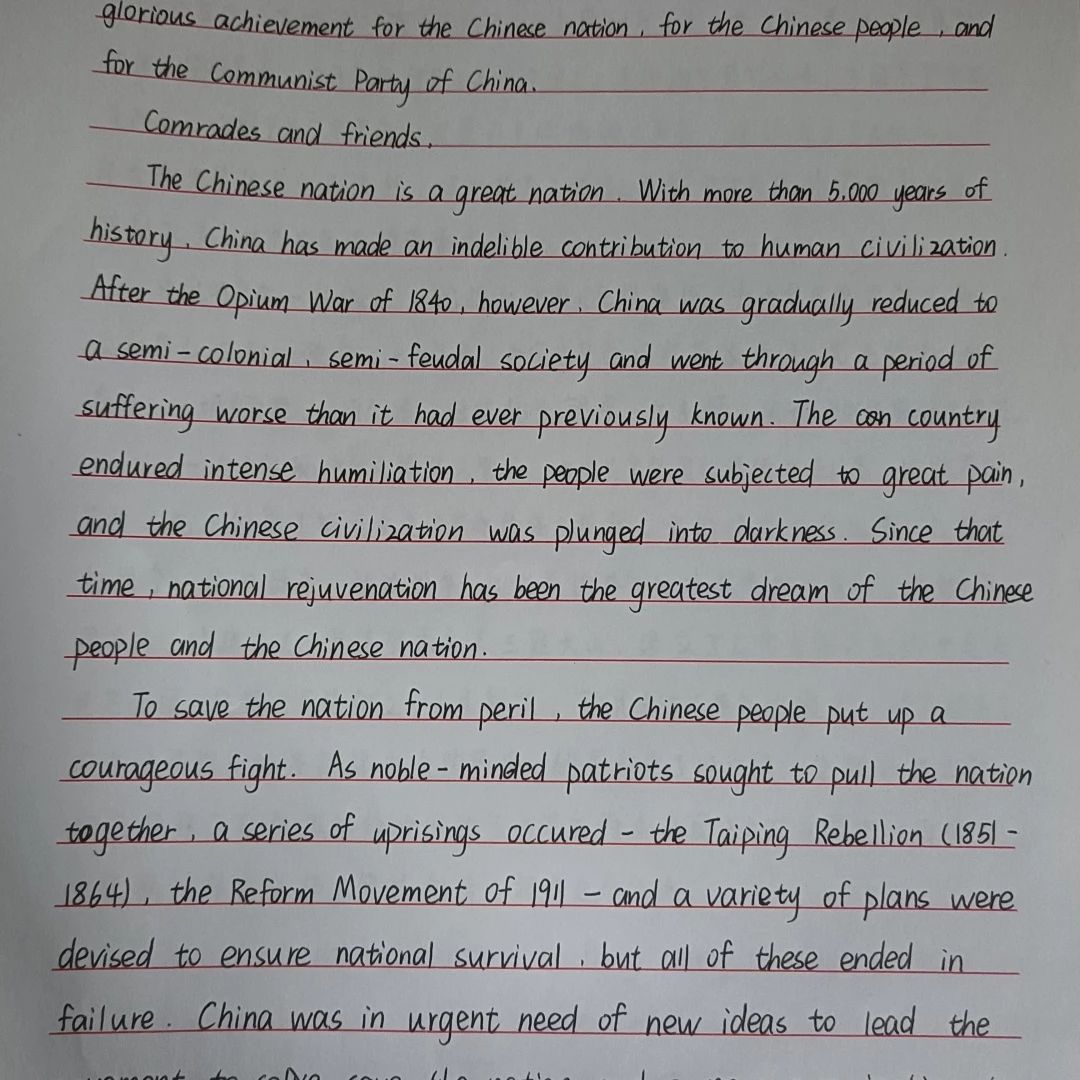 glorious achievement for the Chinese nation, for the Chinese people, and
for the Communist Party of China.
Comrades and friends,
The Chinese nation is a great nation. With more than 5,000 years of
history, China has made an indelible contribution to human civilization.
After the Opium War of 1840, however, China was gradually reduced to
a semi-colonial, semi-feudal society and went through a period of
suffering worse than it had ever previously known. The con country
endured intense humiliation, the people were subjected to great pain,
and the Chinese civilization was plunged into darkness. Since that
time, national rejuvenation has been the greatest dream of the Chinese
people and the Chinese nation.
To save the nation from peril, the Chinese people put up a
courageous fight. As noble-minded patriots sought to pull the nation
together, a series of uprisings occured - the Taiping Rebellion (1851-
1864), the Reform Movement of 1911 - and a variety of plans were
devised to ensure national survival, but all of these ended in
failure. China was in urgent need of new ideas to lead the